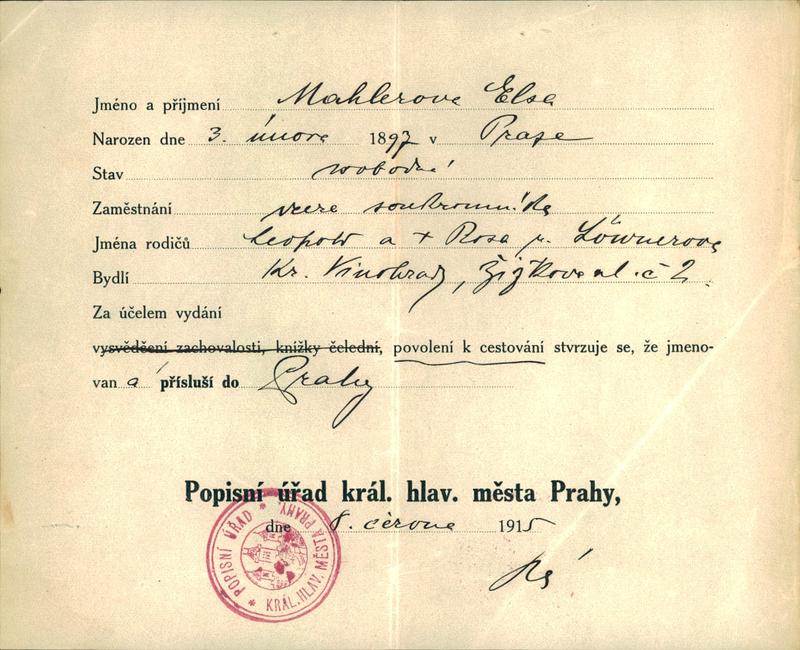 Jméno a příjmení Mahlerova Elsa
Narozen dne 3. února 1897 v Praze
Stav svobodná
Zaměstnání dcera soukromníka
Jména rodičů Leopold a + Rosa r. Löwnerova
Bydlí Kr. Vinohrady, Žižkova ul. č 2.
Za účelem vydání
vysvědčení zachovalosti, knižky čelední, povolení k cestování stvrzuje se, že jmeno-
van á přísluší do Prahy
Popisní úřad král. hlav. města Prahy,
dne 8. června 1915
POPISNÍ ÚŘAD * KRÁL. HLAV. MĚSTA PRAHY *